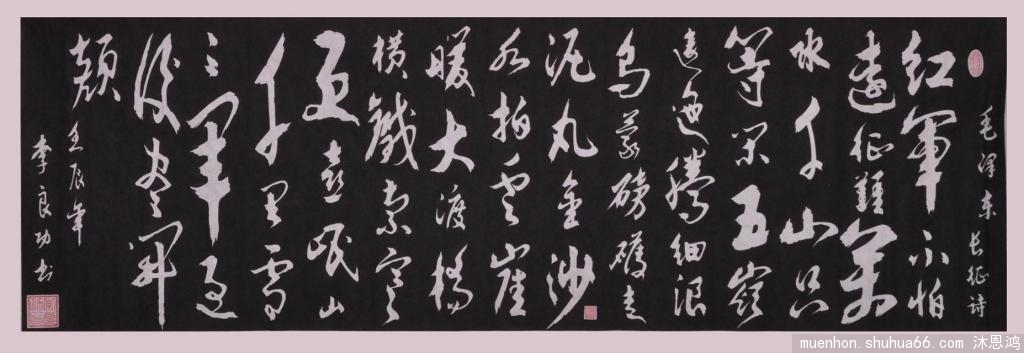 毛泽东 长征诗
紅軍不怕
遠征難萬
水千山只
等闲五嶺
逶迤騰細浪
烏蒙磅礴走
泥丸金沙
水拍雲崖
暖大渡橋
横鐵索寒
更喜岷山
千里雪
三軍過
後盡開
顔
壬辰年
李良功书
muenhon.shuhua66.com 沐恩鸿